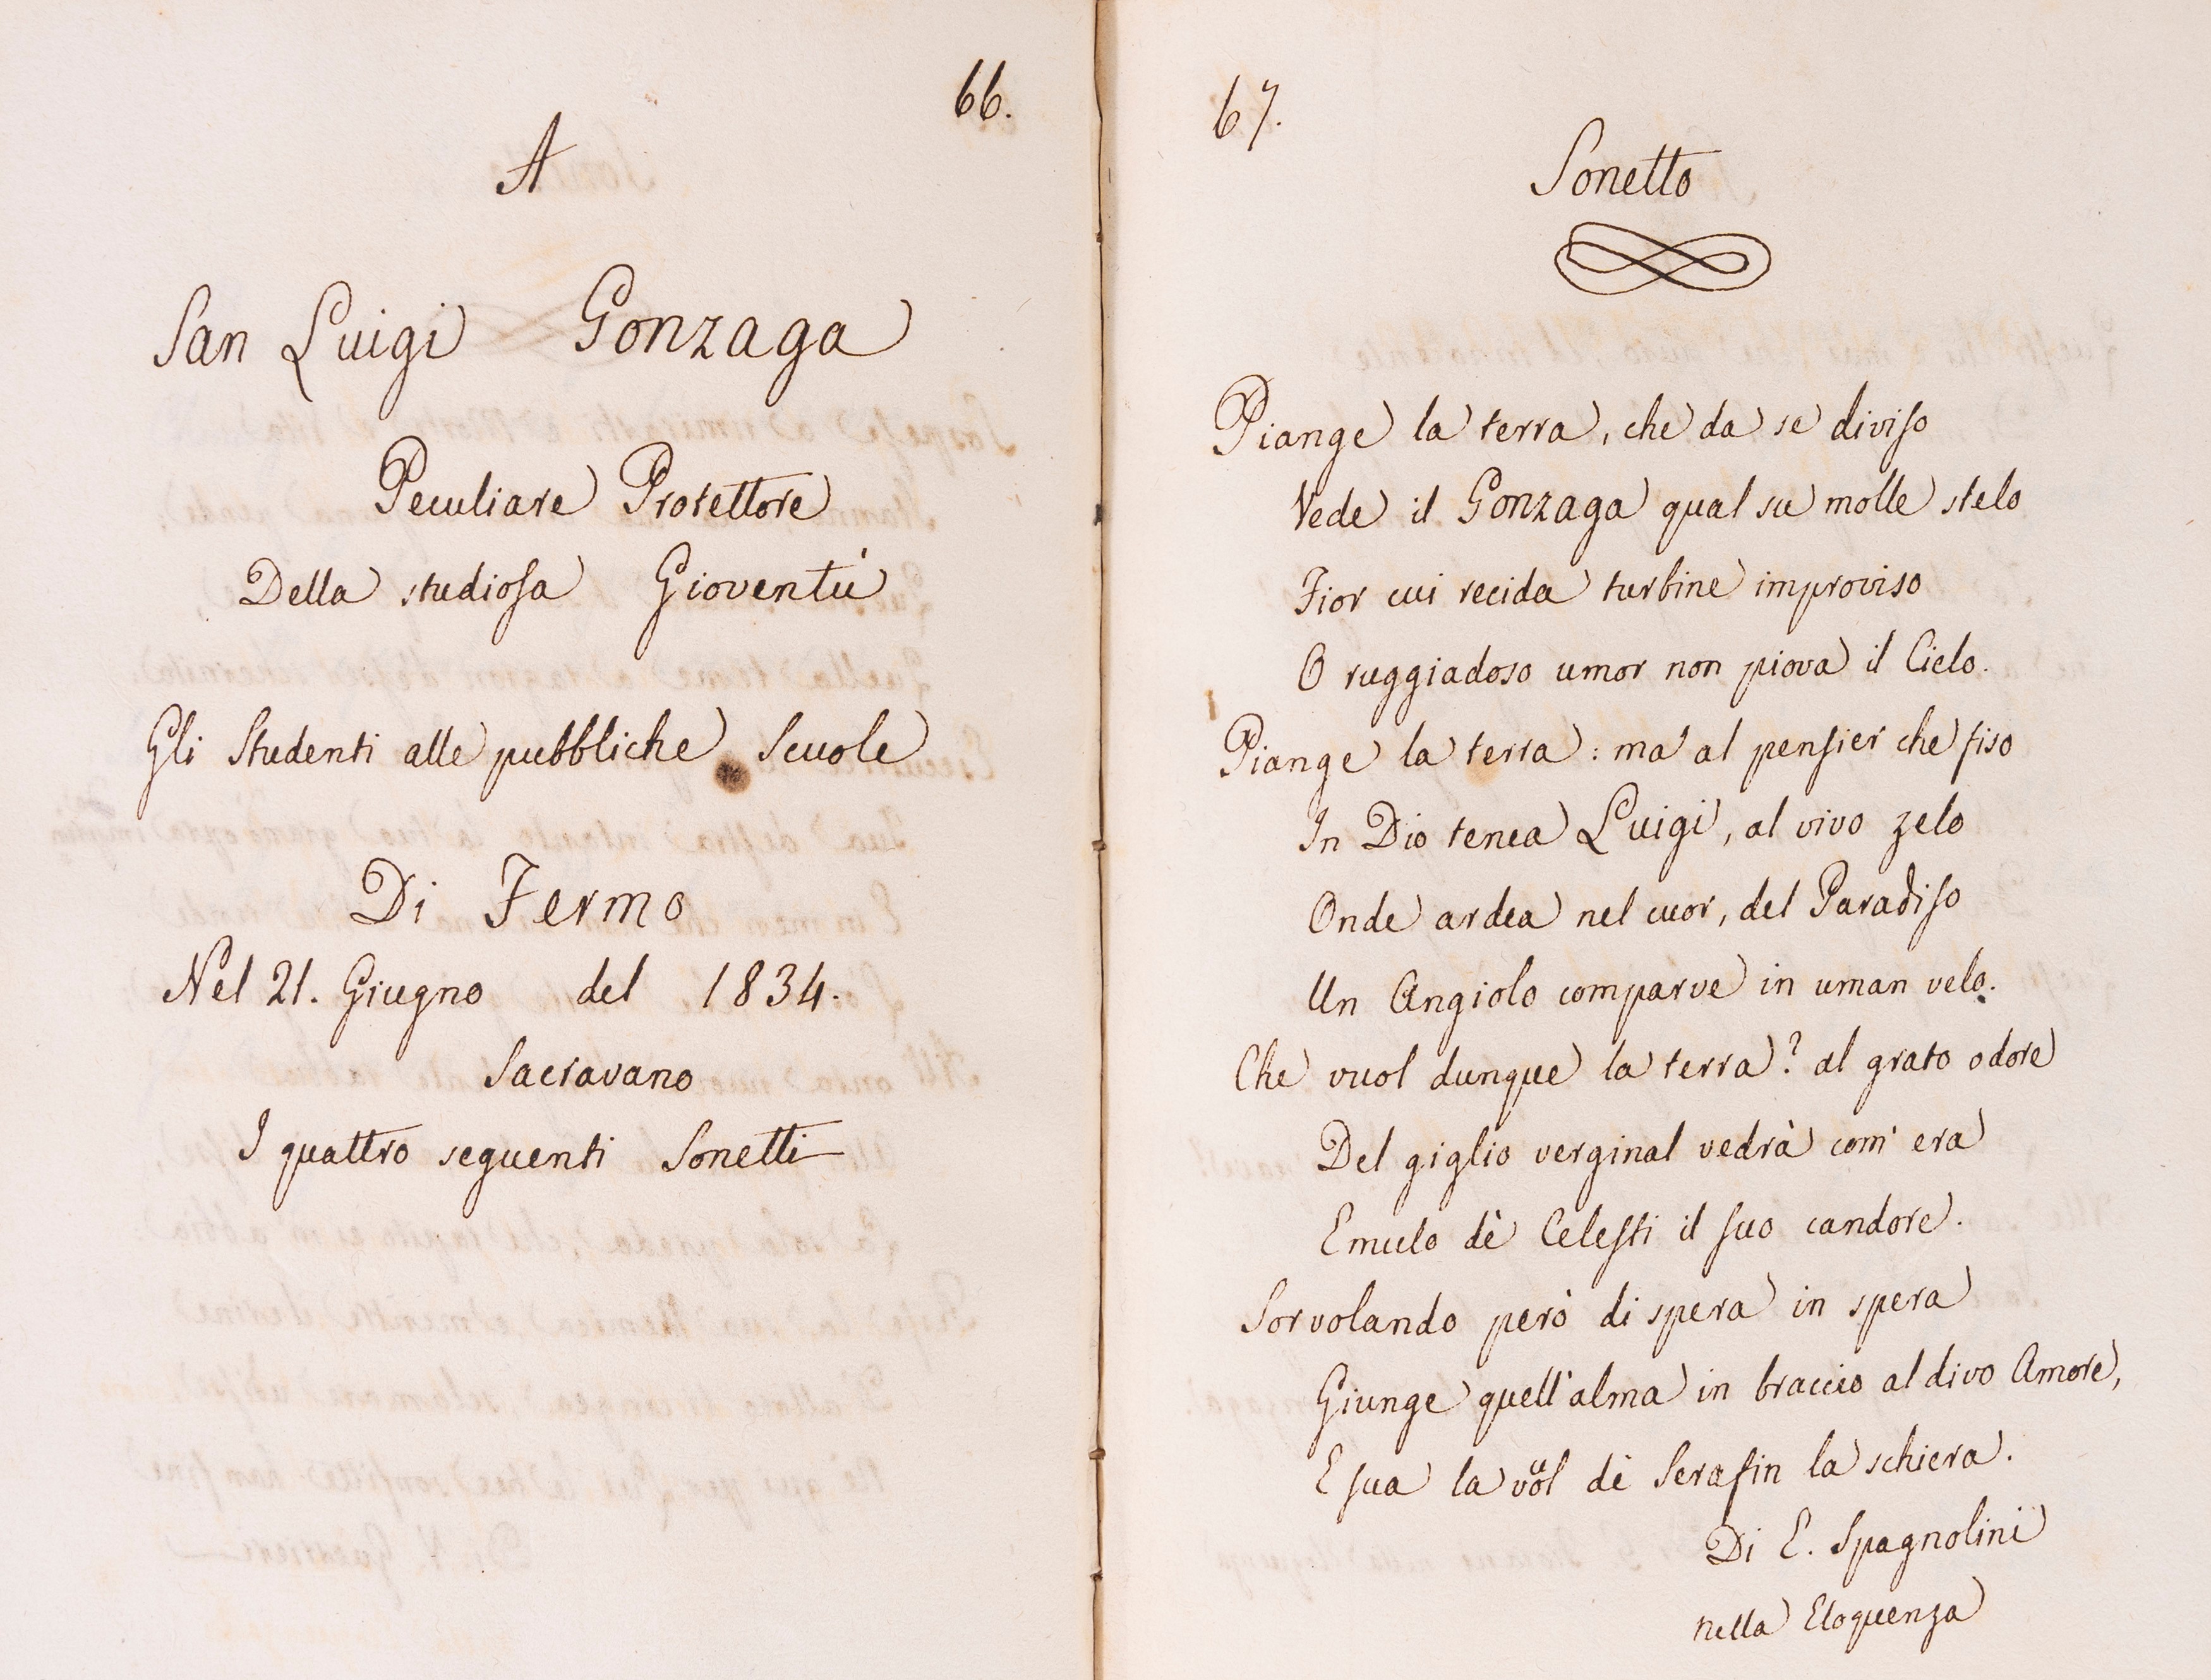 66.
A
San Luigi Gonzaga
Peculiare Protettore
Della studiosa Gioventù
Gli Studenti alle pubbliche Scuole
Di Fermo
Nel 21. Giugno del 1834.
Sacravano
I quattro seguenti Sonetti
67.
Sonetto
Piange la terra, che da se diviso
Vede il Gonzaga qual su molle stelo
Fior cui recida turbine improviso
O ruggiadoso umor non piova il Cielo.
Piange la terra: ma al pensier che fiso
In Dio tenea Luigi, al vivo zelo
Onde ardea nel cuor, del Paradiso
Un Angiolo comparve in uman velo.
Che vuol dunque la terra? al grato odore
Del giglio verginal vedrà com' era
Emulo dè Celesti il suo candore.
Sorvolando però di spera in spera
Giunge quell'alma in braccio al divo Amore,
E sua la vuol dè Serafin la schiera.
Di E. Spagnolini
nella Eloquenza